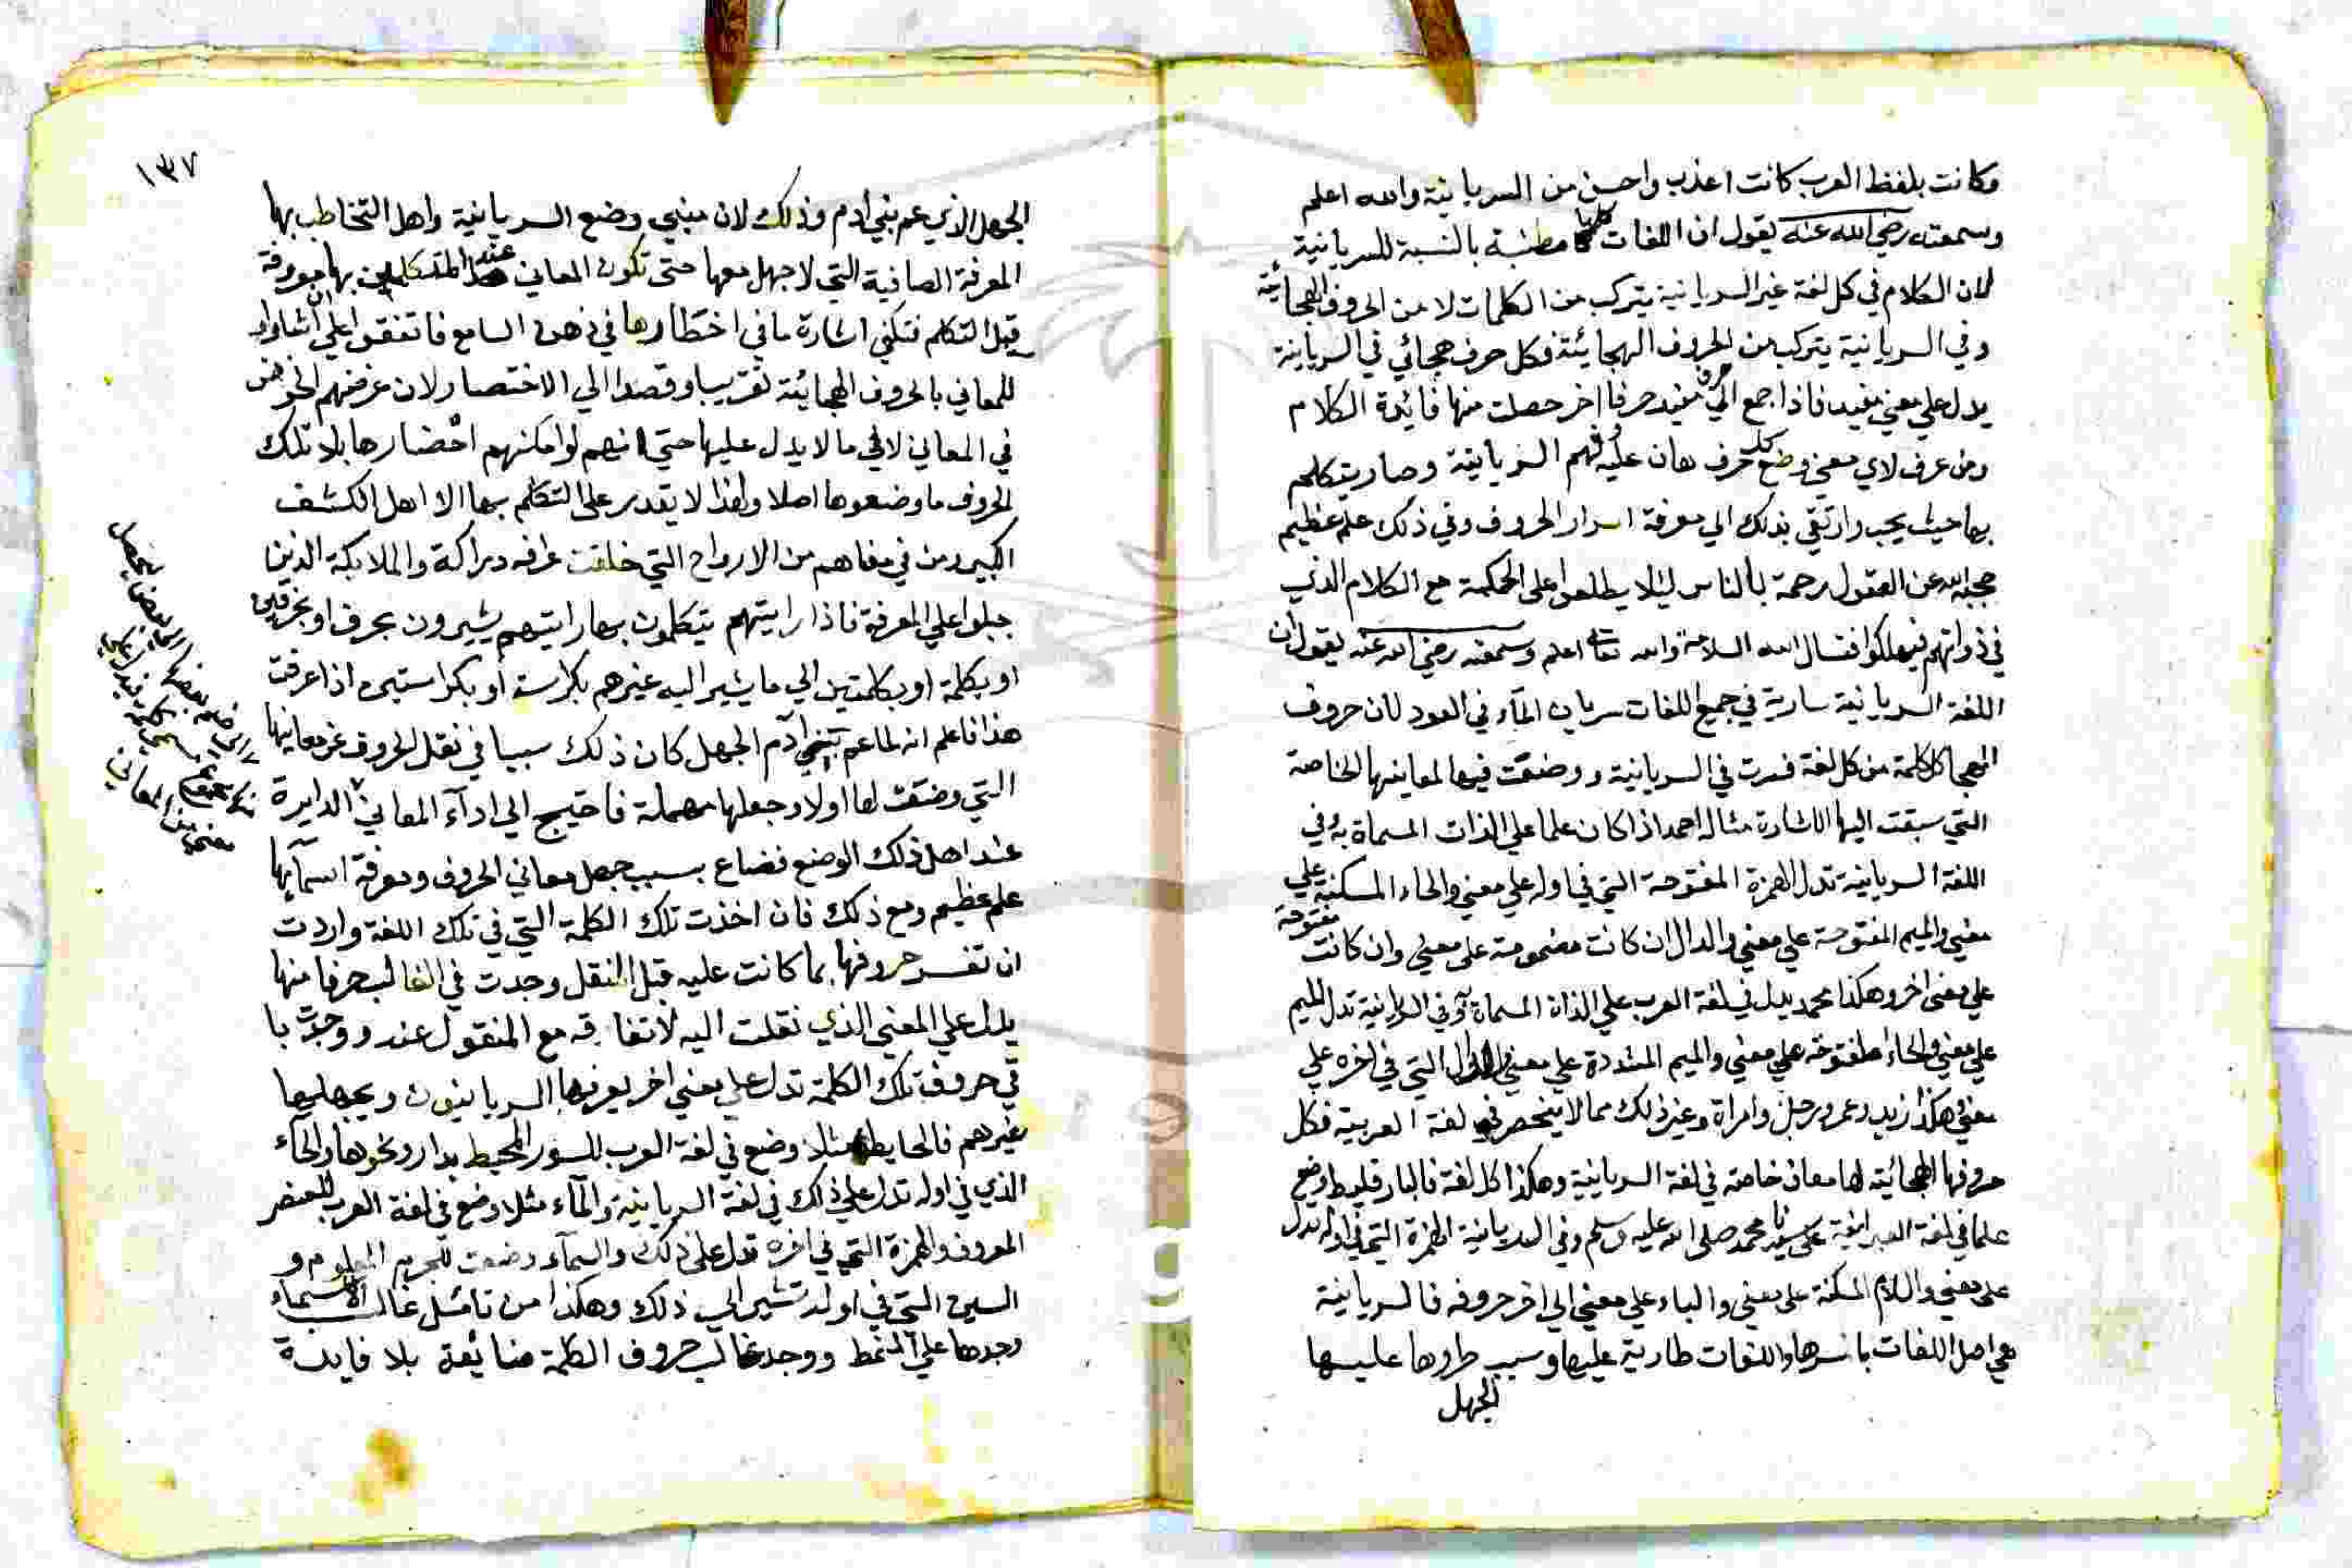 وكانت بلفظ العرب كانت اعذب واحسن من السريانية والله اعلم
وسمعته رضي الله عنه يقول ان اللغات كلها مطنبة بالنسبة للسريانية
لان الكلام في كل لغة غير السريانية يتركب من الكلمات لا من الحروف الهجائية
وفي السريانية يتركب من الحروف الهجائية فكل حرف هجائي في السريانية
يدل علي معني مفيد فاذا جمع الي حرف مفيد حرفا اخر حصلت منها فائدة الكلام
ومن عرف لاي معني وضع كل حرف هان عليه فهم السريانية وصار يتكلم
بها حيث يحب وارتقي بذلك الي معرفة اسرار الحروف وفي ذلك علم عظيم
حجبه الله عن العقول رحمة بالناس ليلا يطلعوا على الحكمة مع الكلام الذي
في ذواتهم فيهلكوا فنسال الله السلامة والله تعالى اعلم وسمعته رضي الله عنه يقول ان
اللغة السريانية سارية في جميع اللغات سريان المآء في العود لان حروف
الهجا كل كلمة من كل لغة فسرت في السريانية ووضعت فيها لمعاينها الخاصة
التي سبقت اليها الاشارة مثاله احمد اذا كان علما علي الذات المسماة به وفي
اللغة السريانية تدل الهمزة المفتوحة التي في اوله علي معني والحاء المسكنة علي
معني والميم المفتوحة علي معني والدال ان كانت مضمومة على معني وان كانت مفتوحة
علي معنى اخر وهكذا محمد يدل في لغة العرب علي الذاة المسماة به وفي السريانية تدل الميم
علي معني والحاء المفتوحة علي معني والميم المشددة علي معني والدال التي في اخره علي
معني وهكذا زيد وعمر ورجل وامراة وغير ذلك مما لا ينحصر في لغة العربية فكل
حروفها الهجائية لها معان خاصة في لغة السريانية وهكذا كل لغة فالبارقليط وضع
علما في لغة العبرانية على سيدنا محمد صلى الله عليه وسلم وفي السريانية الهمزة التي في اوله تدل
على معني واللام المسكنة على معني والباء علي معني الي اخر حروفه فالسريانية
هي اصل اللغات باسرها واللغات طارية عليها وسبب طروها عليها
الجهل
١٣٧
الجهل الذي عم بني ادم وذلك لان مبني وضع السريانية واهل التخاطب بها
المعرفة الصافية التي لا جهل معها حتى تكون المعاني عند المتكلمين بها معروفة
قبل التكلم فتكفي اشارة ما في اختطارها في ذهن السامع فاتفقوا علي ان اشاروا
للمعاني بالحروف الهجائية تقريبا وقصدا الي الاختصار لان غرضهم الخوض
في المعاني لا في ما لا يدل عليها حتي انهم لو امكنهم احضارها بلا تلك
الحروف ما وضعوها اصلا ولهذا لا يقدر على التكلم بها الا اهل الكشف
الكبير ومن في معناهم من الارواح التي خلقت عرافه دراكة والملايكة الذين
جبلوا علي المعرفة فاذا رايتهم يتكلمون بها رايتهم يشيرون بحرف او بحرفين
او بكلمة او بكلمتين الي ما يشير اليه غيرهم بكراسة او بكراستين اذا عرفت
هذا فاعلم انه لما عم بني آدم الجهل كان ذلك سببا في نقل الحروف عن معانيها
التي وضعت لها اولا وجعلها مهملة فاحتيج الي ادآء المعاني الدايرة
الي ضم بعضها الي بعض ليحصل
من مجموعها كلمة تدل علي
معني من المعاني
عند اهل ذلك الوضع فضاع بسبب جهل معاني الحروف ومعرفة اسمآيها
علم عظيم ومع ذلك فان اخذت تلك الكلمة التي في تلك اللغة واردت
ان تفسر حروفها بما كانت عليه قبل النقل وجدت في الغالب حرفا منها
يدل علي المعني الذي نقلت اليه لاتفاقه مع المنقول عند ووجدت با
قي حروف تلك الكلمة تدل علي معني اخر يعرفها السريانيون ويجهلها
غيرهم فالحايط مثلا وضع في لغة العرب للسور المحيط بدار ونحوها والحآء
الذي في اوله تدل علي ذلك في لغة السريانية والمآء مثلا وضع في لغة العرب للعنصر
المعروف والهمزة التي في اخره تدل على ذلك والسمآء وضعت للجرم المعلوم و
السين التي في اوله تشير الي ذلك وهكذا من تامل غالب الاسماء
وجدها علي النمط ووجد غالب حروف الكلمة ضائعة بلا فايدة